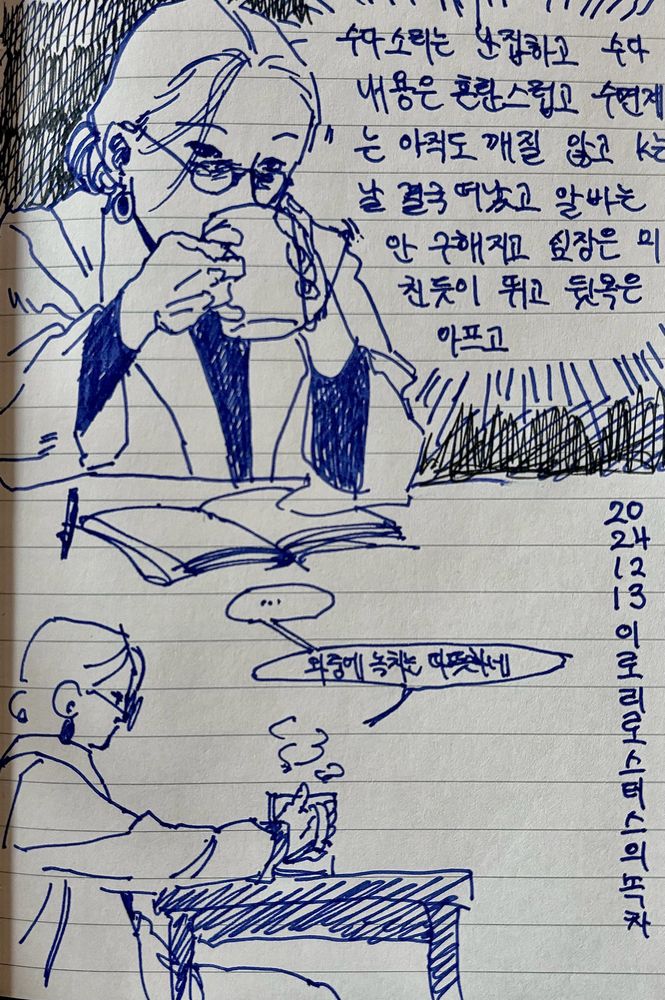 수다소리는 난잡하고 수다
내용은 혼란스럽고 수면제
는 아직도 깨질 않고 K는
날 결국 떠났고 알바는
안 구해지고 심장은 미
친듯이 뛰고 뒷목은
아프고
...
와중에 녹차는 따뜻하네
20
24
12
13
이
로
리
로
스
터
스
의
녹
차